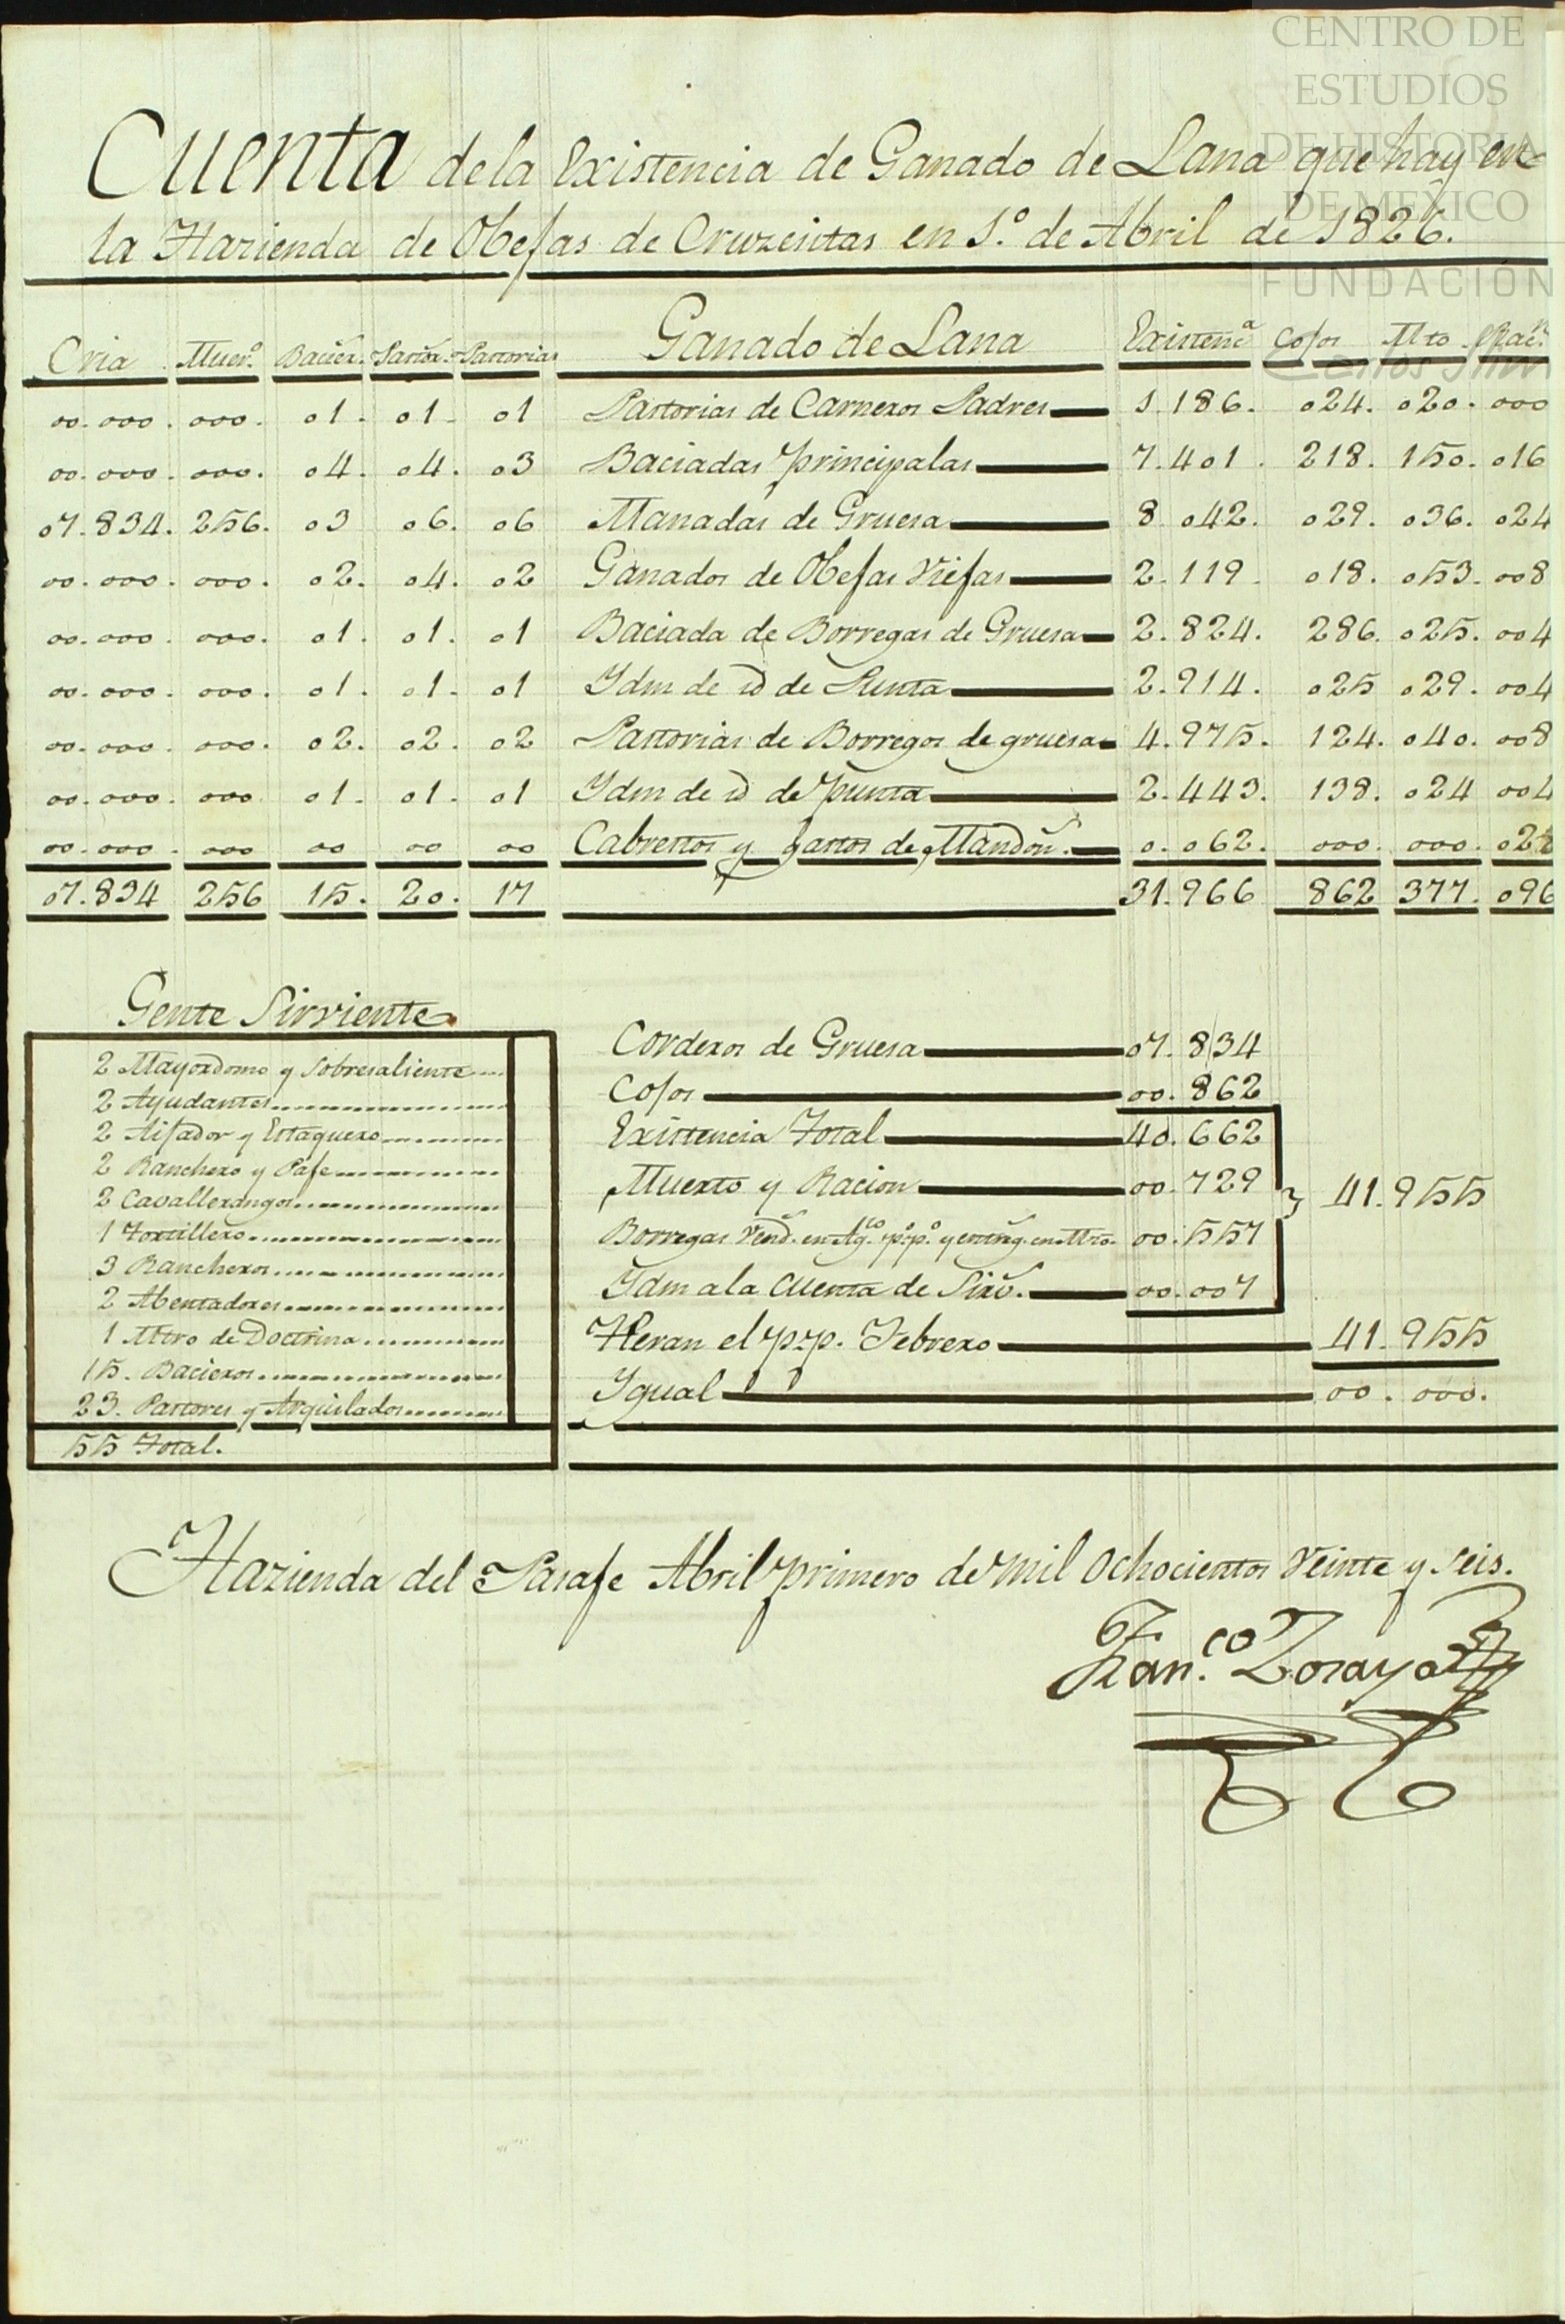 CENTRO DE
ESTUDIOS
DE HISTORIA
DE MÉXICO
FUNDACIÓN
Cuenta de la Existencia de Ganado de Lana que hay en
la Hazienda de Obejas de Cruzesitas en 1.º de Abril de 1826.
Cria Muer.º Bacier. Pastor. Pastorias Ganado de Lana Existenc.ª Cojos Mto. Rac.n
00.000. 000. 01. 01. 01 Pastorias de Carneros Padres 1.186. 024. 020. 000
00.000. 000. 04. 04. 03 Baciadas principalas 7.401. 218. 150. 016
07.834. 256. 03 06. 06 Manadas de Gruesa 8.042. 029. 036. 024
00.000. 000. 02. 04. 02 Ganados de Obejas Viejas 2.119. 018. 053. 008
00.000. 000. 01. 01. 01 Baciada de Borregas de Gruesa 2.824. 286. 025. 004
00.000. 000. 01. 01. 01 Ydm de id de Punta 2.914. 025 029. 004
00.000. 000. 02. 02. 02 Pastorias de Borregos de gruesa 4.975. 124. 040. 008
00.000. 000 01. 01. 01 Ydm de id de punta 2.443. 138. 024 004
00.000. 000 00 00 00 Cabrestos y gastos de Mandon. 0.062. 000. 000. 028
07.834 256 15. 20. 17 31.966 862 377. 096
Gente Sirviente
2 Mayordomo y Sobresaliente
2 Ayudantes
2 Aijador y Estaquero
2 Ranchero y Paje
2 Cavallerangos
1 Tortillero
3 Rancheros
2 Abentadores
1 Mtro de Doctrina
15. Bacieros
23. Pastores y Arquilados
55 Total.
Corderos de Gruesa 07.834
Cojos 00.862
Existencia Total 40.662
Muerto y Racion 00.729 41.955
Borregas Vend. en Ag.to p.º p.º y entreg. en Mro. 00.557
Ydm a la Cuenta de Sirv. 00.007
Heran el p.p. Febrero 41.955
Ygual 00.000.
Hazienda del Saraje Abril primero de mil Ochocientos Veinte y Seis.
Fran.co Zoraya